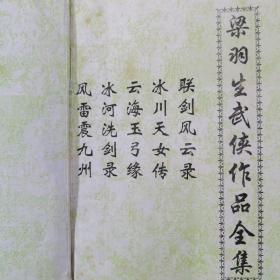 梁羽生武侠作品全集
联剑风云录
冰川天女传
云海玉弓缘
冰河洗剑录
风雷震九州